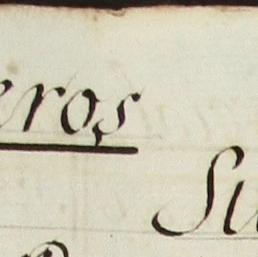 eros
Su